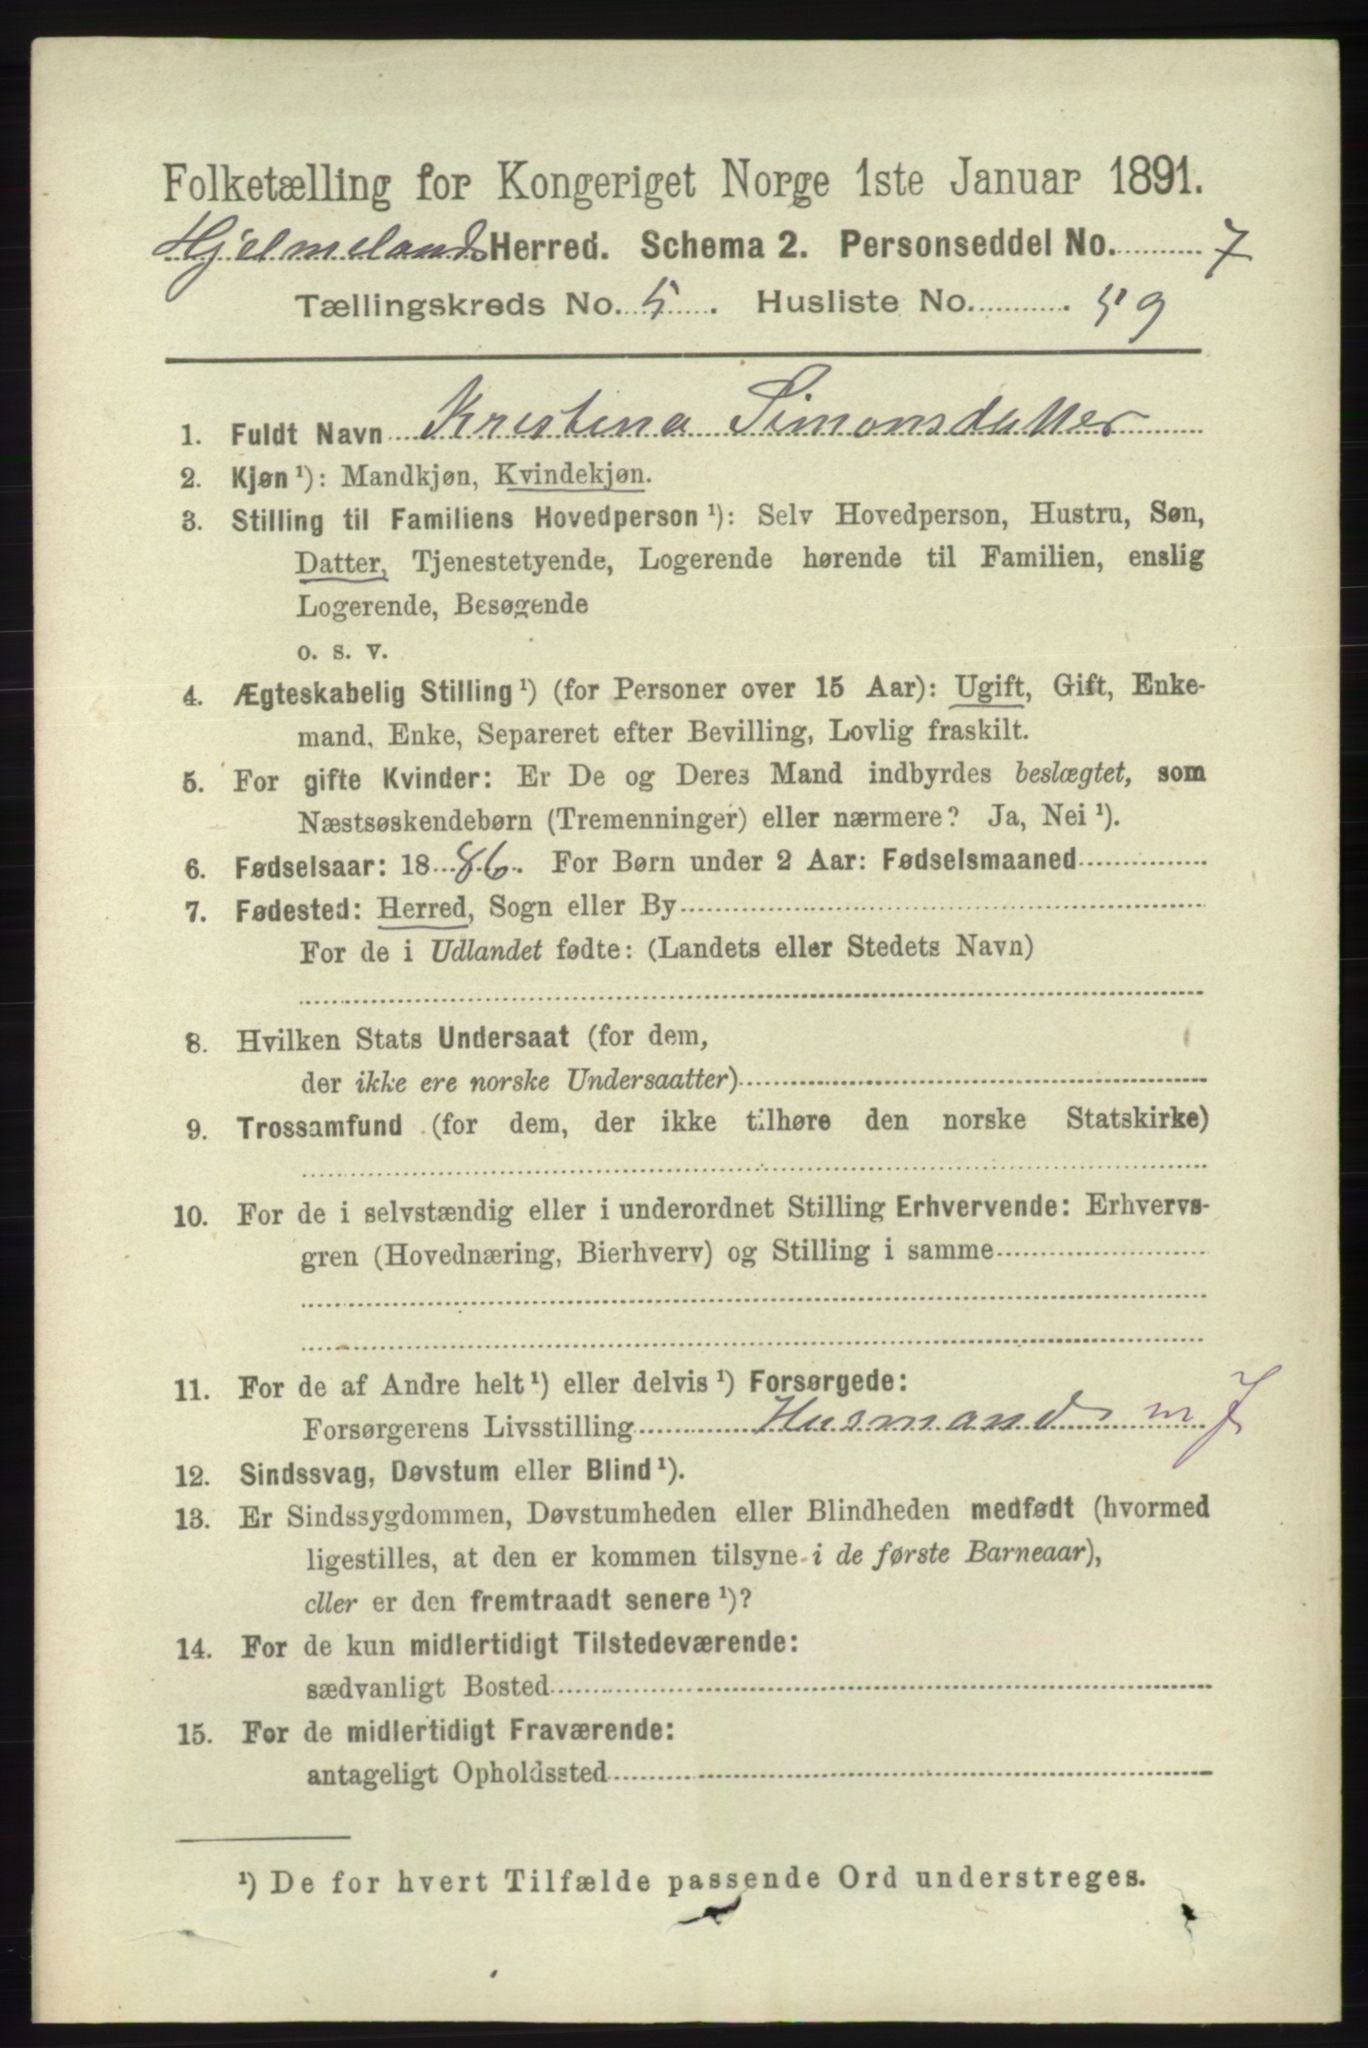 Folketælling for Kongeriget Norge 1ste Januar 1891.
Hjelmeland Herred. Schema 2. Personseddel No. 7
Tællingskreds No. 5. Husliste No. 59
1. Fuldt Navn Kristina Simonsdatter
2. Kjøn ¹): Mandkjøn, Kvindekjøn.
3. Stilling til Familiens Hovedperson ¹): Selv Hovedperson, Hustru, Søn,
Datter, Tjenestetyende, Logerende hørende til Familien, enslig
Logerende, Besøgende
o. s. v.
4. Ægteskabelig Stilling ¹) (for Personer over 15 Aar): Ugift, Gift, Enke-
mand, Enke, Separeret efter Bevilling, Lovlig fraskilt.
5. For gifte Kvinder: Er De og Deres Mand indbyrdes beslægtet, som
Næstsøskendebørn (Tremenninger) eller nærmere? Ja, Nei ¹).
6. Fødselsaar: 1886. For Børn under 2 Aar: Fødselsmaaned
7. Fødested: Herred, Sogn eller By
For de i Udlandet fødte: (Landets eller Stedets Navn)
8. Hvilken Stats Undersaat (for dem,
der ikke ere norske Undersaatter)
9. Trossamfund (for dem, der ikke tilhøre den norske Statskirke)
10. For de i selvstændig eller i underordnet Stilling Erhvervende: Erhvervs-
gren (Hovednæring, Bierhverv) og Stilling i samme
11. For de af Andre helt ¹) eller delvis ¹) Forsørgede:
Forsørgerens Livsstilling Husmand m J
12. Sindssvag, Døvstum eller Blind ¹).
13. Er Sindssygdommen, Døvstumheden eller Blindheden medfødt (hvormed
ligestilles, at den er kommen tilsyne i de første Barneaar),
eller er den fremtraadt senere ¹)?
14. For de kun midlertidigt Tilstedeværende:
sædvanligt Bosted
15. For de midlertidigt Fraværende:
antageligt Opholdssted
¹) De for hvert Tilfælde passende Ord understreges.